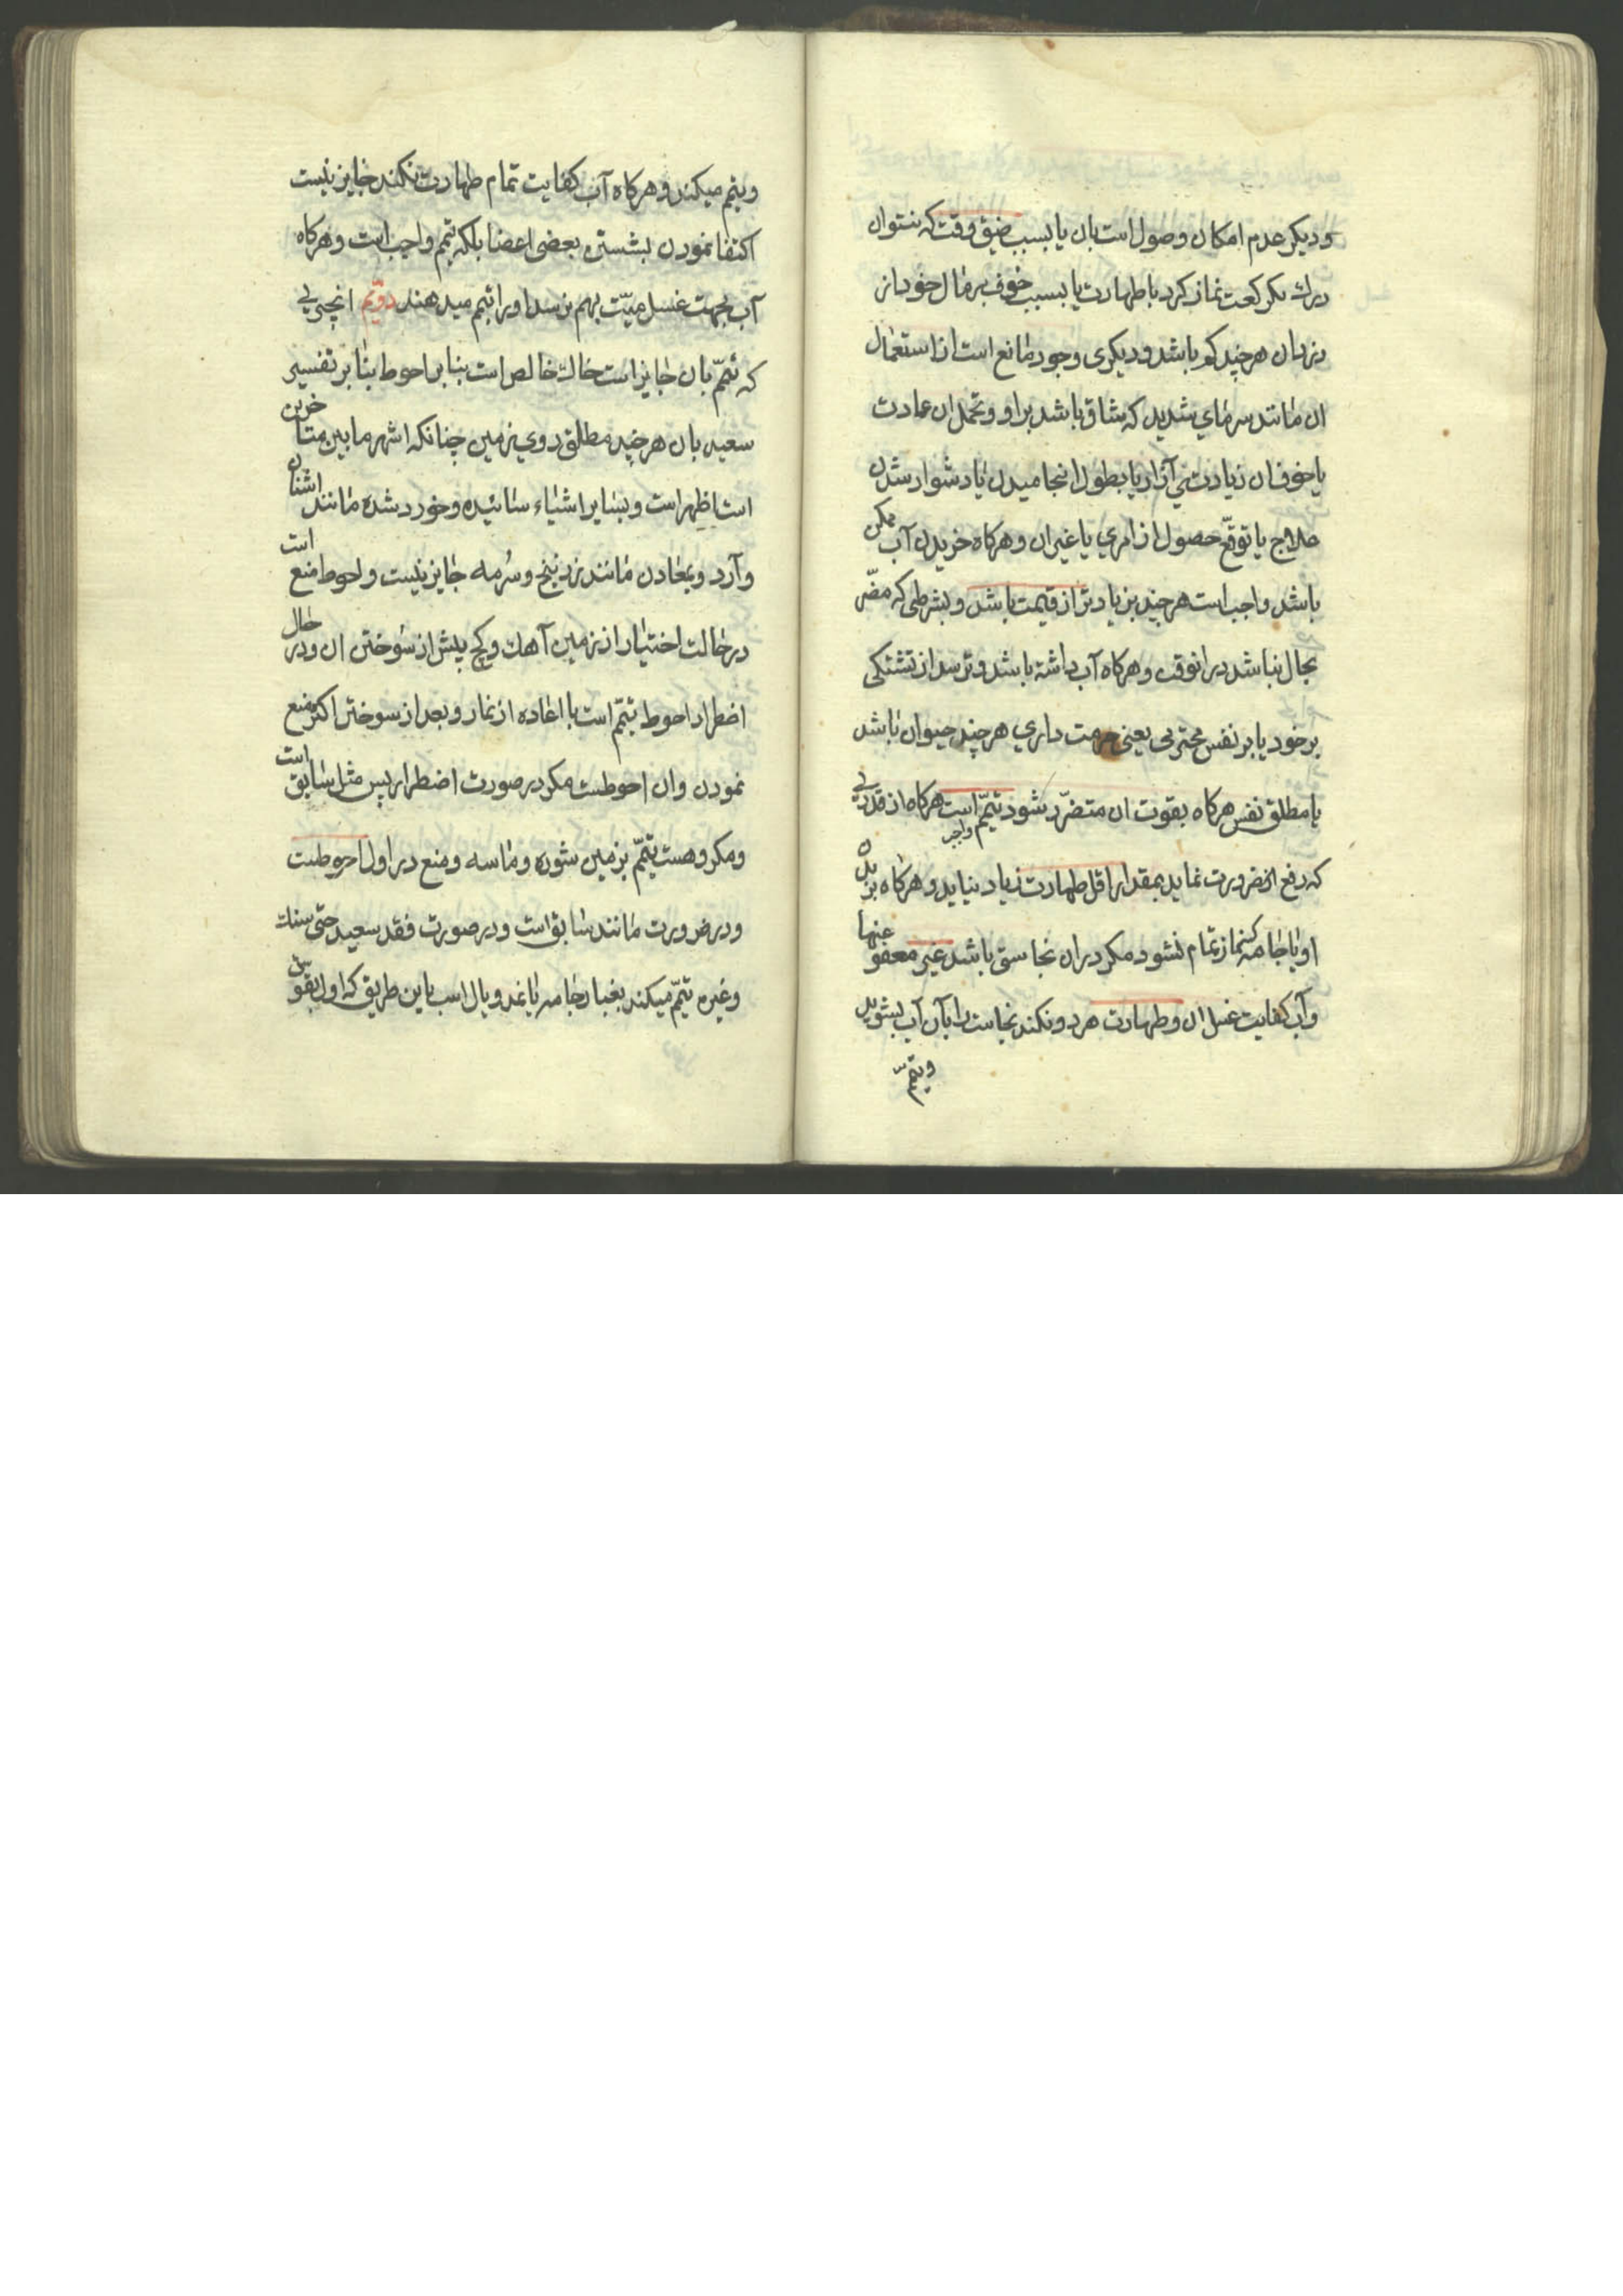 ودیکر عدم امکان وصول است بان یا بسبب ضیق وقت که نتوان
دراك یکرکعت نماز کرد با طهارت یا بسبب خوف بر مال خود از
دزدان هرچند کم باشد ودیکری وجود مانع است از استعمال
ان مانند سرمای شدید که شاق باشد براو وتحمل ان عادت
یا خوف ان زیادتی آزار یا بطول انجامیدن یا دشوار شدن
علاج یا توقع حصول ازاری یا غیران وهرکاه خریدن آب ممکن
باشد واجب است هرچند بزیادتر از قیمت باشد وبشرطی که مضّر
بحال نباشد درانوقت وهرکاه آب داشته باشد وترسد از تشنکی
برخود یا بر نفس محترمی یعنی حرمت داری هرچند حیوان باشد
یا مطلق نفس هرکاه بفوت ان متضرّر شود تیمّم واجب است هرکاه از قدری
که رفع ان ضرورت نماید بمقدار اقل طهارت زیاد نیاید وهرکاه بر بدن
او یا جامه که نماز تمام نشود مکر دران نجاستی باشد غیر معفو عنها
وآب کفایت غسل ان وطهارت هردو نکند نجاست را بآن آب بشوید
وتیمّم
وتیمم میکند وهرکاه آب کفایت تمام طهارت نکند جایز نیست
اکتفا نمودن بشستن بعضی اعضا بلکه تیمم واجب است وهرکاه
آب بجهت غسل میّت بهم نرسد اورا تیمم میدهند دوّیم انچیزی
که تیمّم بان جایز است خاك خالص است بنابر احوط بنابر تفسیر
سعید بان هرچند مطلق روی زمین چنانکه اشهر مابین متاخرین
است اظهر است وبسایر اشیاء سائیده وخورد شده مانند اشنان
وآرد وبمعادن مانند زرنیخ وسُرمه جایز نیست واحوط منع است
در حالت اختیار از زمین آهك وکچ پیش از سوختن ان ودر حال
اضطرار احوط تیمّم است با اعاده از نماز وبعد از سوختن اکثر منع
نمودن وان احوطست مکر در صورت اضطرار پس مثل سابق است
ومکروهست تیمّم بزمین شوره وماسه ومنع در اول احوطست
ودر ضرورت مانند سابق است ودر صورت فقد سعید حتی سنك
وغیره تیمّم میکند بغبار جامه یا نمد ویال اسب باین طریق که اول بقوّتی